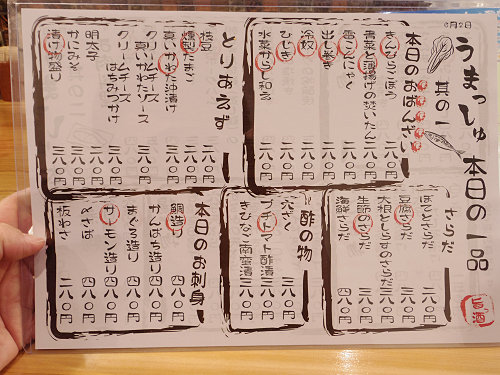 6月2日
うまっしゅ 本日の一品
其の一
本日のおばんざい
きんぴらごぼう 二八〇円
青菜と油揚げの焚いたん 二八〇円
雷こんにゃく 二八〇円
出し巻き 三八〇円
冷奴 二八〇円
ひじき 二八〇円
水菜からし和え 二八〇円
とりあえず
枝豆 二八〇円
燻製たまご 二八〇円
真いわしの沖漬け 三八〇円
クリームチーズ 三八〇円
クリームチーズ はちみつがけ 三八〇円
明太子 三八〇円
かにみそ 三八〇円
漬け物盛り 三八〇円
さらだ
ぽてとさらだ 三八〇円
豆腐さらだ 三八〇円
大根としらすのさらだ 三八〇円
生節さらだ 三八〇円
海鮮さらだ 四八〇円
酢の物
穴ざく 三八〇円
プチトマト酢漬 三八〇円
きびなご南蛮漬 三八〇円
本日のお刺身
鯛造り 四八〇円
かんぱち造り 四八〇円
まぐろ造り 四八〇円
サーモン造り 四八〇円
〆さば 四八〇円
板わさ 二八〇円
旨酒